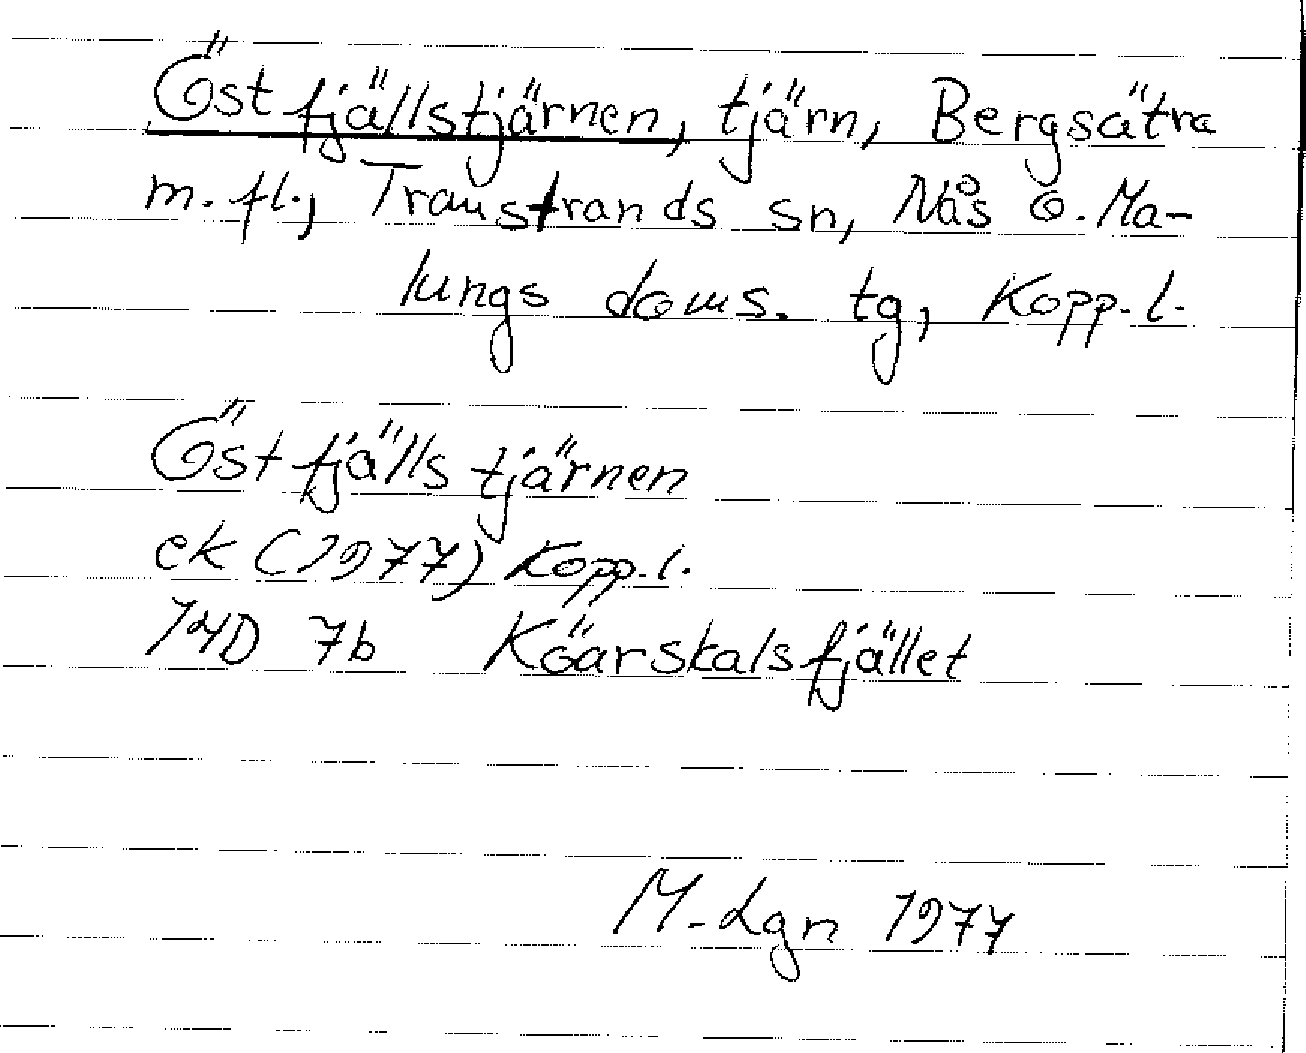 Östfjällstjärnen, tjärn, Bergsätra
m.fl., Transtrands sn, Nås o. Ma-
lungs doms. tg, Kopp.l.
Östfjällstjärnen
ek (1977) Kopp.l.
14D 7b Köarskalsfjället
M-Lgn 1977